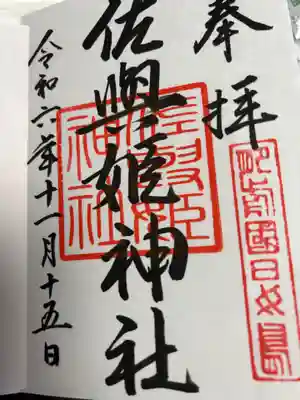 奉拝
肥前國日女島
佐與姫神社
佐與姫
神社
令和六年十一月十五日